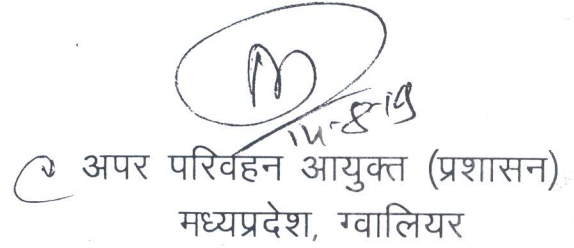 14-8-19
अपर परिवहन आयुक्त (प्रशासन)
मध्यप्रदेश, ग्वालियर